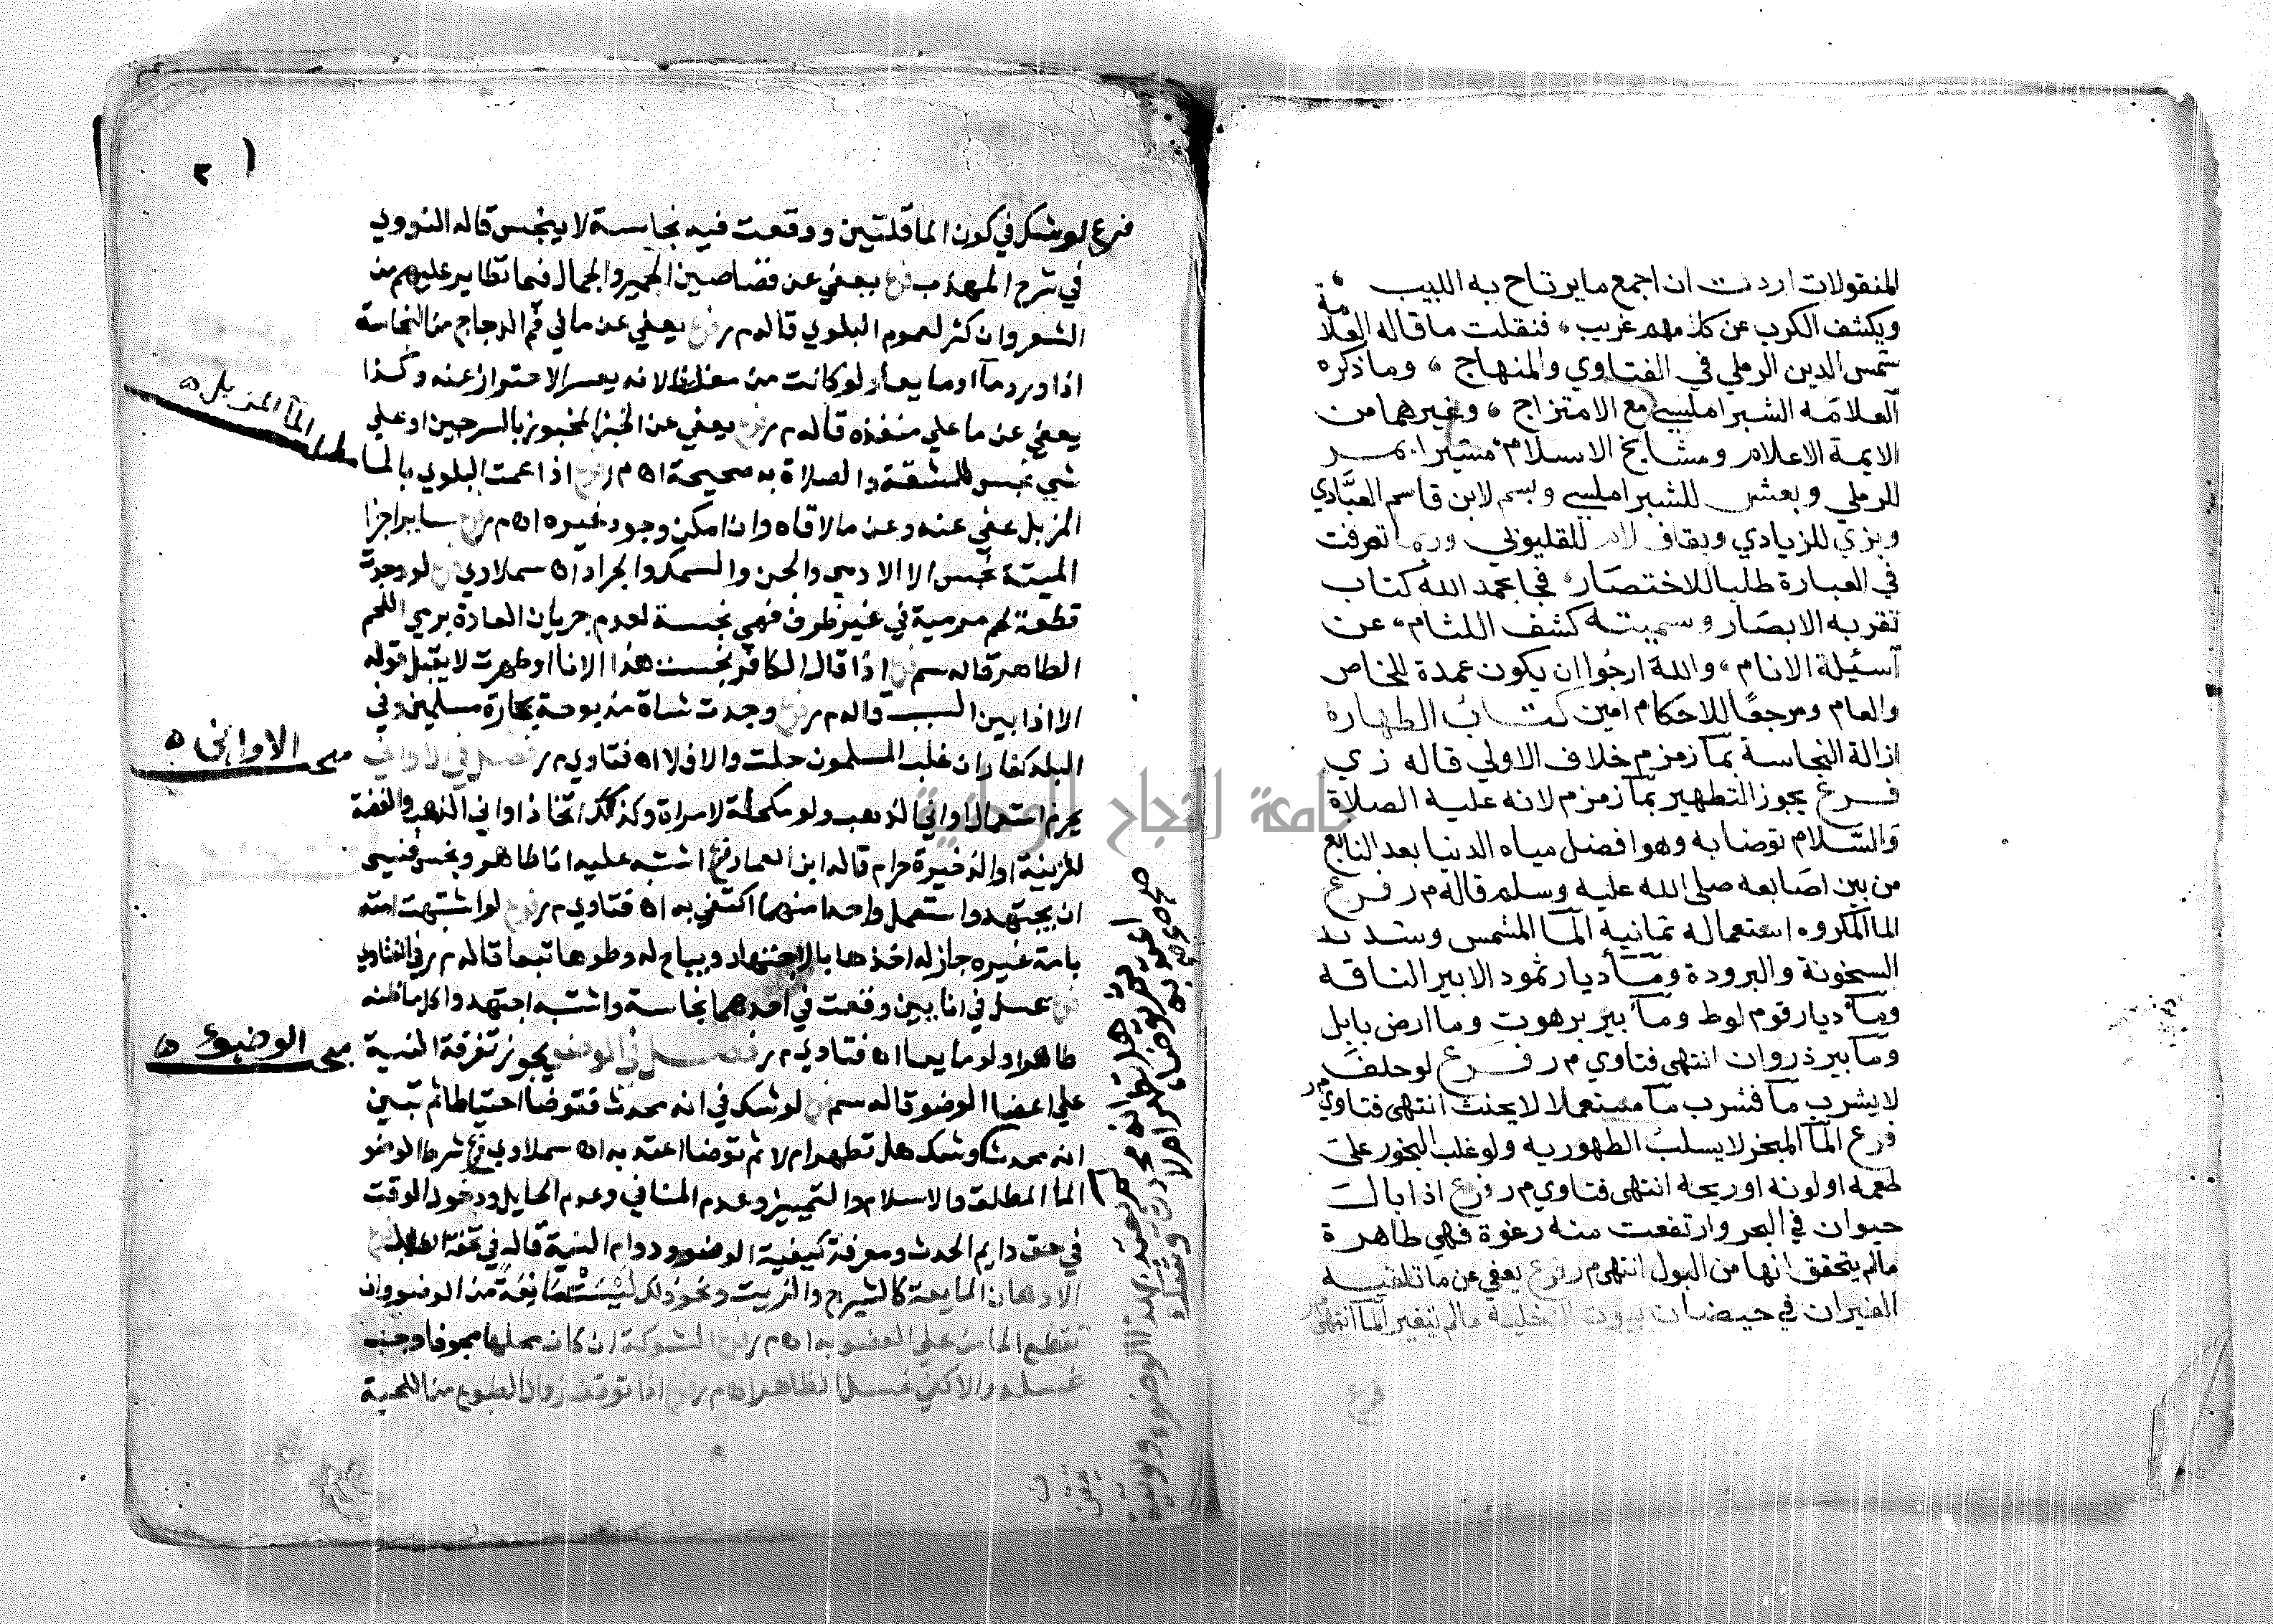 المنقولات اردت ان اجمع ما يرتاح به اللبيب
ويكشف الكرب عن كل مهم غريب فنقلت ما قاله العلامة
شمس الدين الرملي في الفتاوي والمنهاج وما ذكره
العلامه الشبراملسي مع الامتزاج وغيرهما من
الايمة الاعلام ومشايخ الاسلام مشيرا بمر
للرملي وبعش للشبراملسي وبسم لابن قاسم العبادي
وبزي للزيادي وبقاف لام للقليوبي وربما تصرفت
في العبارة طلبا للاختصار فجا بحمد الله كتاب
تقر به الابصار وسميته كشف اللثام عن
اسئيلة الانام والله ارجوا ان يكون عمدة للخاص
والعام ومرجعا للاحكام امين كتاب الطهارة
ازالة النجاسة بمآ زمزم خلاف الاولي قاله زي
فرع يجوز التطهير بمآ زمزم لانه عليه الصلاة
والسلام توضا به وهو افضل مياه الدنيا بعد النابع
من بين اصابعه صلي الله عليه وسلم قاله م ر فرع
الما المكروه استعماله ثمانية المآ المشمس وشديد
السخونة والبرودة ومآ ديار ثمود الا بير الناقه
ومآ ديار قوم لوط ومآ بير برهوت وما ارض بابل
ومآ بير ذروان انتهي فتاوي م ر فرع لو حلف
لا يشرب مآ فشرب مآ مستعملا لا يحنث انتهي فتاوي م ر
فرع المآ المبخر لا يسلب الطهوريه ولو غلب البخور علي
طعمه او لونه او ريحه انتهي فتاوي م ر فرع اذا بالت
حيوان في البحر وارتفعت منه رغوة فهي طاهرة
مالم يتحقق انها من البول انتهي م ر فرع يعفي عن ما تلقيه
الفيران في حيضان بيوت الاخلية مالم يتغير المآ انتهي م ر
فرع
٢
فرع لو شك في كون الما قلتين ووقعت فيه نجاسة لا ينجس قاله النووي
في شرح المهذب فرع يعفي عن الحمير والجمال فيما تطاير عليهم من
الشعر وان كثر لعموم البلوي قاله م ر فرع يعفي عن ما في فم الدجاج من النجاسة
اذا ورد مآ او مايعا ولو كانت من مغلظ لانه يعسر الاحتراز عنه وكذا
يعفي عن ما علي منفذه قاله م ر فرع يعفي عن الخبز المخبوز بالسرجين او علي
شي نجس للمشقة والصلاة به صحيحة اه م ر فرع اذا عمت البلوي بالما
مطلب المآ المزبل ه
المزبل عفي عنه وعن ما لاقاه وان امكن وجود غيره اه م ر فرع ساير اجزا
الميتة نجس الا الادمي والجن والسمك والجراد اه سملاوي فرع لو وجدت
قطعة لحم مرمية في غير ظرف فهي نجسة لعدم جريان العادة برمي اللحم
الطاهر قاله سم فرع اذا قال الكافر نجست هذا الانا او طهرت لا يقبل قوله
الا اذا بين السبب قاله م ر فرع وجدت شاة مذبوحة بحارة مسلمين وفي
البلد كفار ان غلب المسلمون حلت والا فلا اه فتاوي م ر فصل في الاواني
مبحث الاواني ه
يحرم استعمال اواني الذهب ولو مكحلة لامراة وكذلك اتخاذ اواني الذهب والفضة
للزينة او الذخيرة حرام قاله ابن العماد فرع اشتبه عليه انا طاهر ونجس فنسي
ان يجتهد واستعمل واحدا منهما اكتفي به اه فتاوي م ر فرع لو اشتبهت امته
بامة غيره جاز له اخذها بالاجتهاد ويباح له وطوها تبعا قاله م ر في الفتاوي
فرع عسل في انايين وقعت في احدهما نجاسة واشتبه اجتهد واكل ما ظنه
طاهرا ولو مايعا اه فتاوي م ر فصل في الوضوء يجوز تفرقة النية
مبحث الوضوء ه
علي اعضا الوضو قاله سم فرع لو شك في انه محدث فتوضا احتياطا ثم تبين
انه محدث وشك هل تطهر ام لا ثم توضا اعتد به اه سملاوي فرع شرط الوضو
الما المطلق والاسلام والتمييز وعدم المنافي وعدم الحايل ودخول الوقت
في حق دايم الحدث ومعرفة كيفية الوضو ودوام النية قاله في تحفة الطلاب فرع
الادهان المايعة كالشيرج والزيت ونحو ذلك ليست مانعة من الوضو وان
تقطع الما من علي العضو به اه م ر فرع الشوكة ان كان محلها مجوفا وجب
غسله والا كفي غسل الظاهر اه م ر فرع اذا توقف زوال الطبوع من اللحية
جامعة النجاح الوطنية